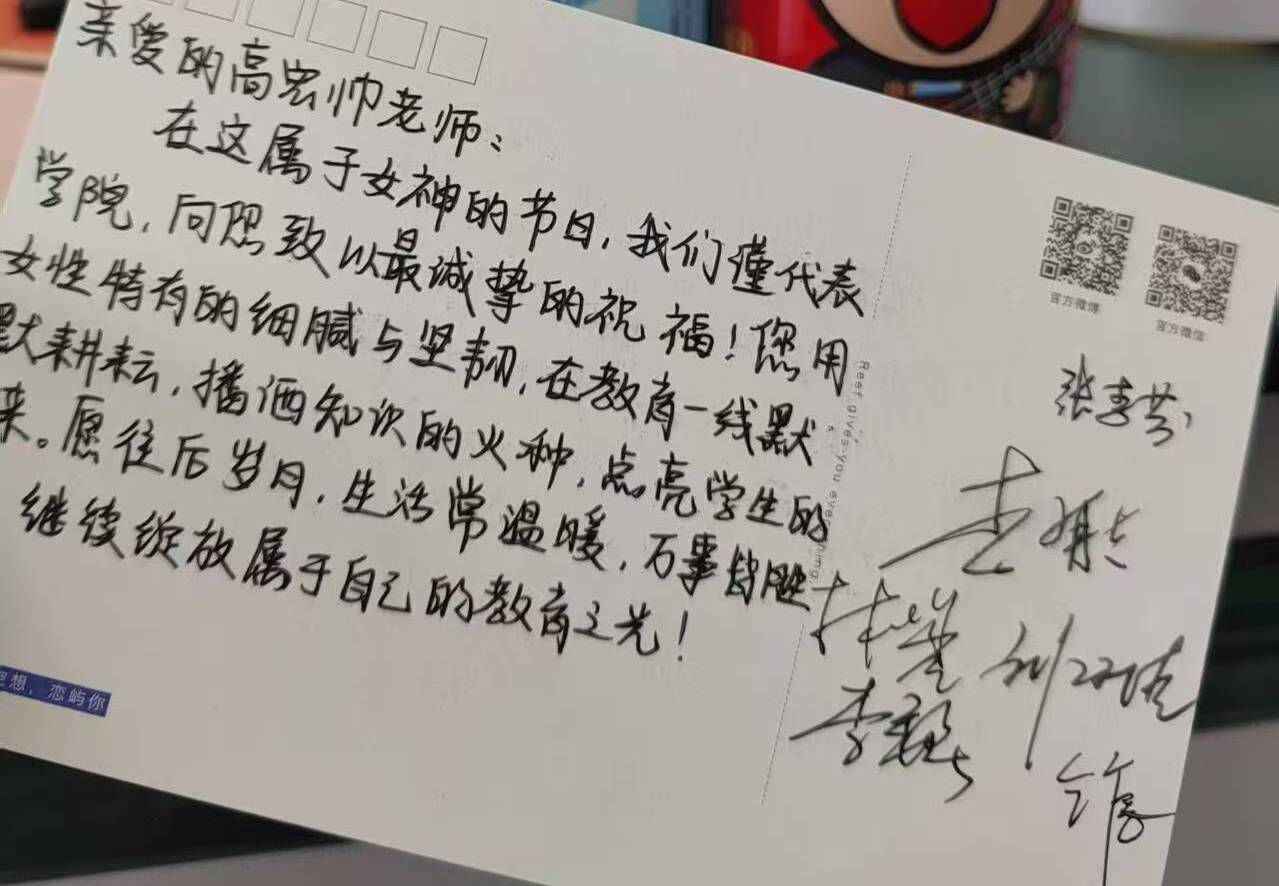 亲爱的高宏帅老师：
在这属于女神的节日，我们谨代表
学院，向您致以最诚挚的祝福！您用
女性特有的细腻与坚韧，在教育一线默
默耕耘，播洒知识的火种，点亮学生的
来。愿往后岁月，生活常温暖，万事皆胜
继续绽放属于自己的教育之光！
想，恋屿你
Reef gives you
官方微博
官方微信